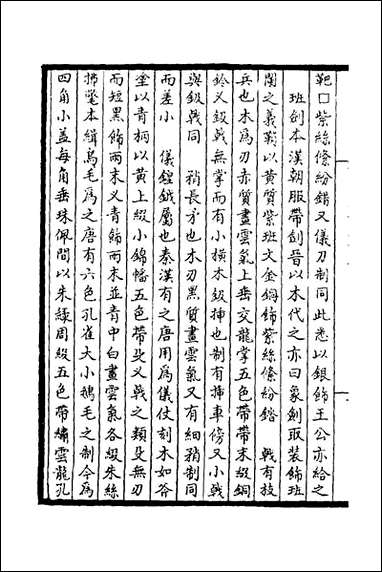 靶囗紫絲絛紛錯又儀刀制同此悉以銀飾王公亦給之
班劍本漢朝服帶劍晉以木代之亦曰象劍取裝飾班
闌之義鞘以黃質紫班文金銅飾紫絲絛紛鍇　戟有技
兵也木為刃赤質畫雲氣上垂交龍掌五色帶帶末綴銅
鈴又鈒戟無掌而有小橫木鈒揷也制有揷車傍又小戟
與鈒戟同　矟長矛也木刃黑質畫雲氣又有細矟制同
而差小　儀鍠鉞屬也秦漢有之唐用為儀仗刻木如斧
塗以青柄以黃上綴小錦幡五色帶殳义戟之類殳無刃
而短黑飾兩末义青飾兩末並青中白畫雲氣各綴朱絲
拂氅本緝鳥毛為之唐有六色孔雀大小鵝毛之制今為
四角小蓋每角垂珠佩間以朱緌周綴五色帶繡雲龍孔